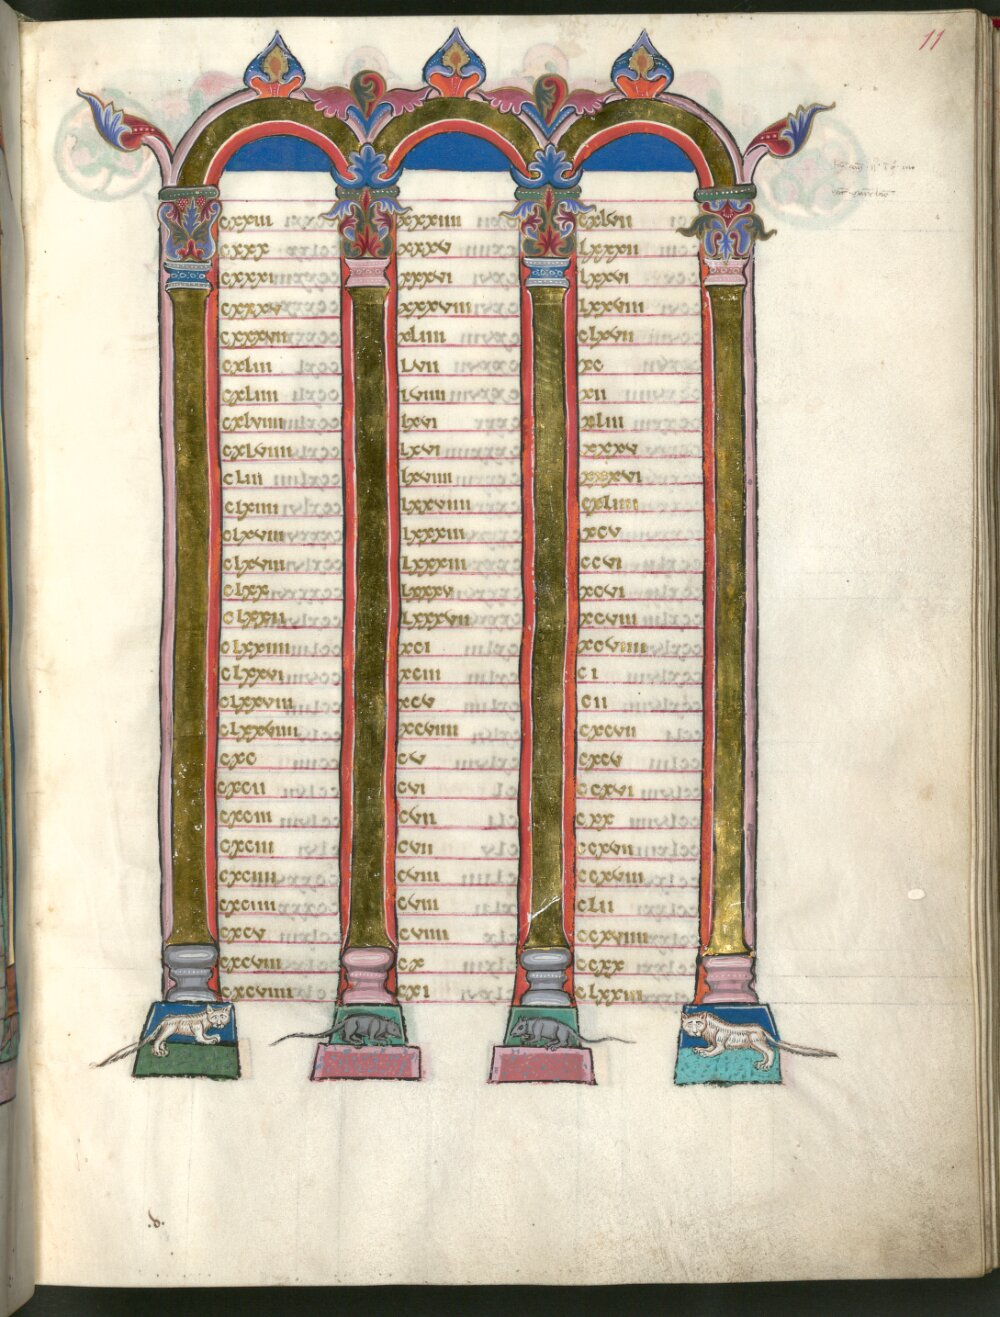 11
cxxiii xxxiiii cxlvii
cxxx xxxv lxxxii
cxxxi xxxvi lxxvi
cxxxv xxxviii lxxviii
cxxxvii xliiii clxvii
cxliii lvii xc
cxliiii lviiii xii
cxlviii lxvi xliii
cxlviiii lxvi xxxv
cliii lxviiii xxxvi
clxiiii lxxviiii cxliiii
clxviii lxxxiii xcv
clxviii lxxxiii ccvi
clxx lxxxv xcvi
clxxii lxxxvii xcviii
clxxiiii xci xcviiii
clxxvi xciii ci
clxxviii xcv cii
clxxviiii xcviiii cxcvii
cxc cv cxcv
cxcii cvi ccxvi
cxciii cvii cxx
cxciii cvii ccxvii
cxciiii cviii ccxviii
cxciiii cviii clii
cxcv cviiii ccxviiii
cxcviii cx ccxx
cxcviiii cxi clxxiii
.d.